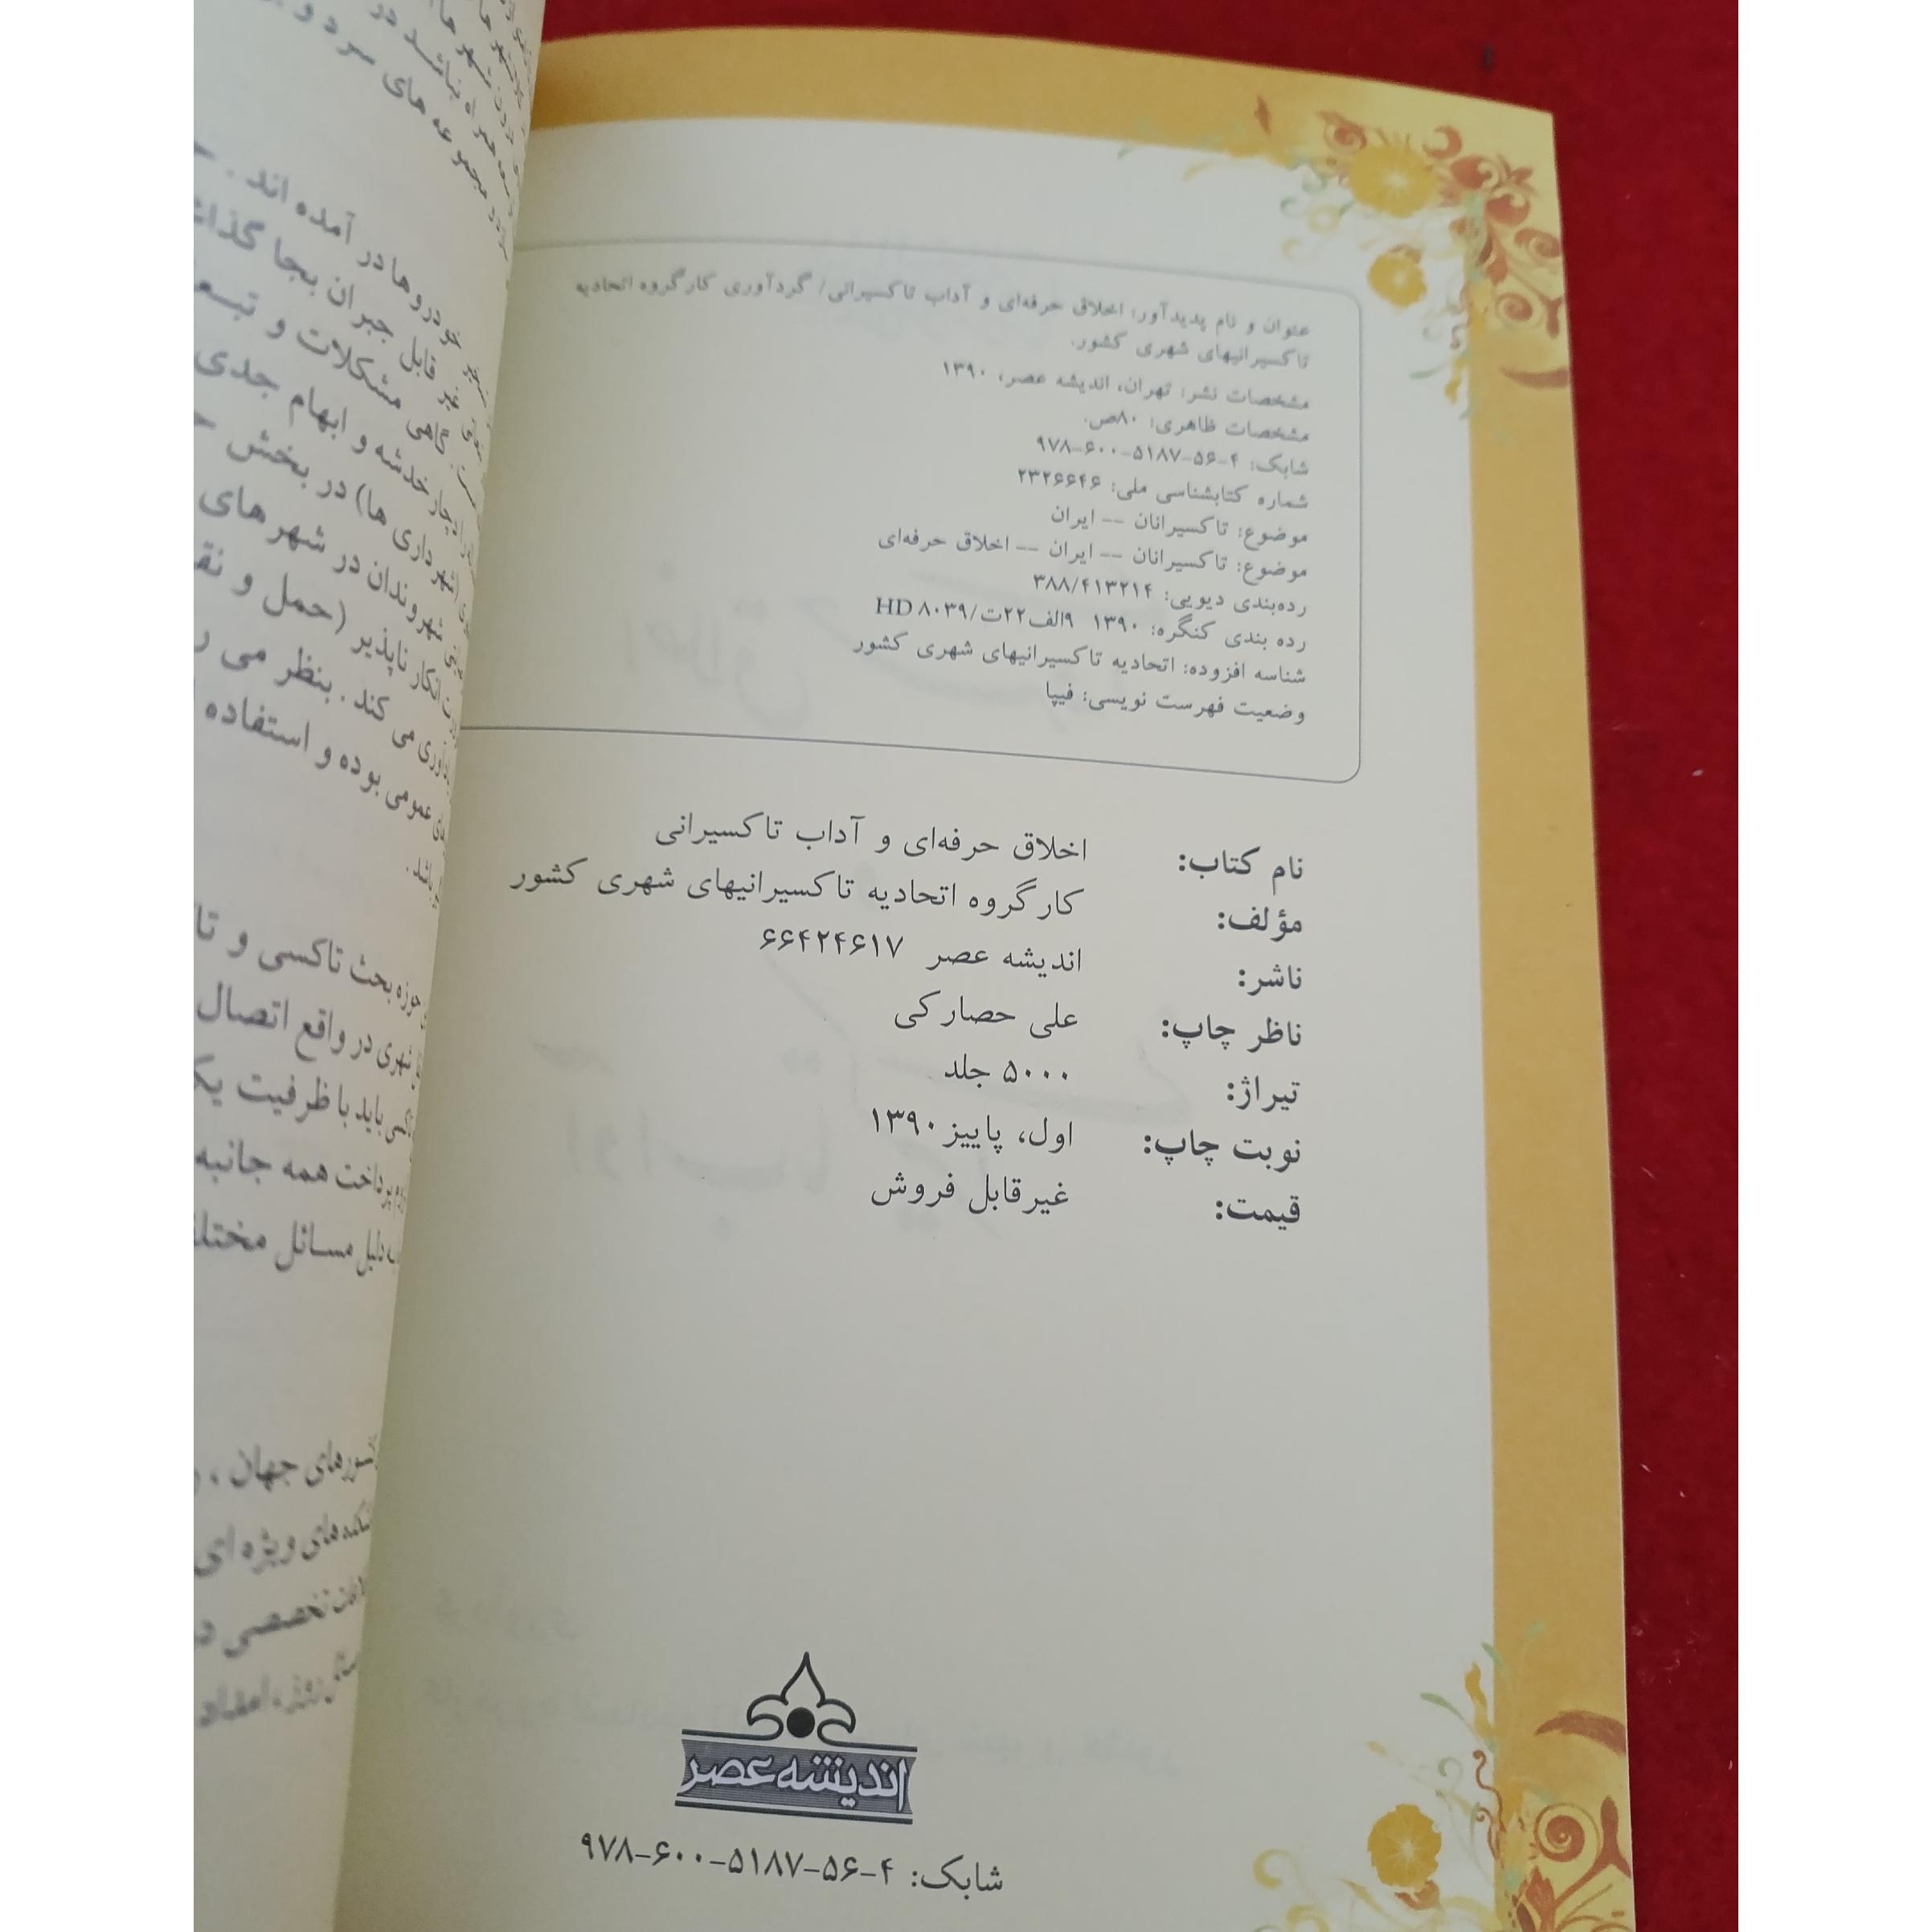 عنوان و نام پدیدآور: اخلاق حرفه‌ای و آداب تاکسیرانی/ گردآوری کارگروه اتحادیه
تاکسیرانیهای شهری کشور.
مشخصات نشر: تهران، اندیشه عصر، ۱۳۹۰
مشخصات ظاهری: ۸۰ص.
شابک: ۴-۵۶-۵۱۸۷-۶۰۰-۹۷۸
شماره کتابشناسی ملی: ۲۳۲۶۶۴۶
موضوع: تاکسیرانان -- ایران
موضوع: تاکسیرانان -- ایران -- اخلاق حرفه‌ای
رده‌بندی دیویی: ۳۸۸/۴۱۳۲۱۴
رده بندی کنگره: ۱۳۹۰ ۹الف۲۲ت/HD ۸۰۳۹
شناسه افزوده: اتحادیه تاکسیرانیهای شهری کشور
وضعیت فهرست نویسی: فیپا
نام کتاب: اخلاق حرفه‌ای و آداب تاکسیرانی
مؤلف: کارگروه اتحادیه تاکسیرانیهای شهری کشور
ناشر: اندیشه عصر ۶۶۴۲۴۶۱۷
ناظر چاپ: علی حصارکی
تیراژ: ۵۰۰۰ جلد
نوبت چاپ: اول، پاییز ۱۳۹۰
قیمت: غیرقابل فروش
اندیشه عصر
شابک: ۴-۵۶-۵۱۸۷-۶۰۰-۹۷۸
مجموعه های سرد و
خودروها در آمده اند .
قابل جبران بجا
گاهی مشکلات و
خدشه و ابهام جدی
(شهرداری ها) در بخش
شهروندان در شهرهای
انکار ناپذیر (حمل و
می کند . بنظر می
عمومی بوده و استفاده
باشد .
حوزه بحث تاکسی و
شهری در واقع اتصال
باید با ظرفیت
همه جانبه
دلیل مسائل
جهان ،
ویژه ای
تخصصی